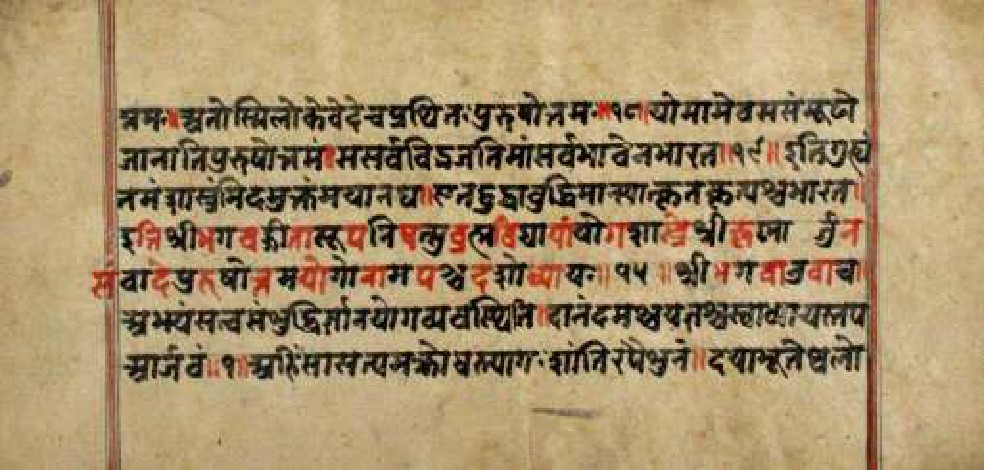 त्तमः॥अतोस्मिलोकेवेदेचप्रथितःपुरुषोत्तमः॥१८॥योमामेवमसंमूढो
जानातिपुरुषोत्तमं॥ससर्वविद्भजतिमांसर्वभावेनभारत॥१९॥इतिगुह्य
तमंशास्त्रमिदमुक्तंमयानघ॥एतद्बुद्ध्वाबुद्धिमान्स्यात्कृतकृत्यश्चभारत॥
इतिश्रीभगवद्गीतासूपनिषत्सुब्रह्मविद्यायांयोगशास्त्रेश्रीकृष्णार्जुन
संवादेपुरुषोत्तमयोगोनामपञ्चदशोध्यायः॥१५॥श्रीभगवानुवाच॥
अभयंसत्वसंशुद्धिर्ज्ञानयोगव्यवस्थितिः॥दानंदमश्चयज्ञश्चस्वाध्यायस्तप
आर्जवं॥१॥अहिंसासत्यमक्रोधस्त्यागःशांतिरपैशुनं॥दयाभूतेष्वलो